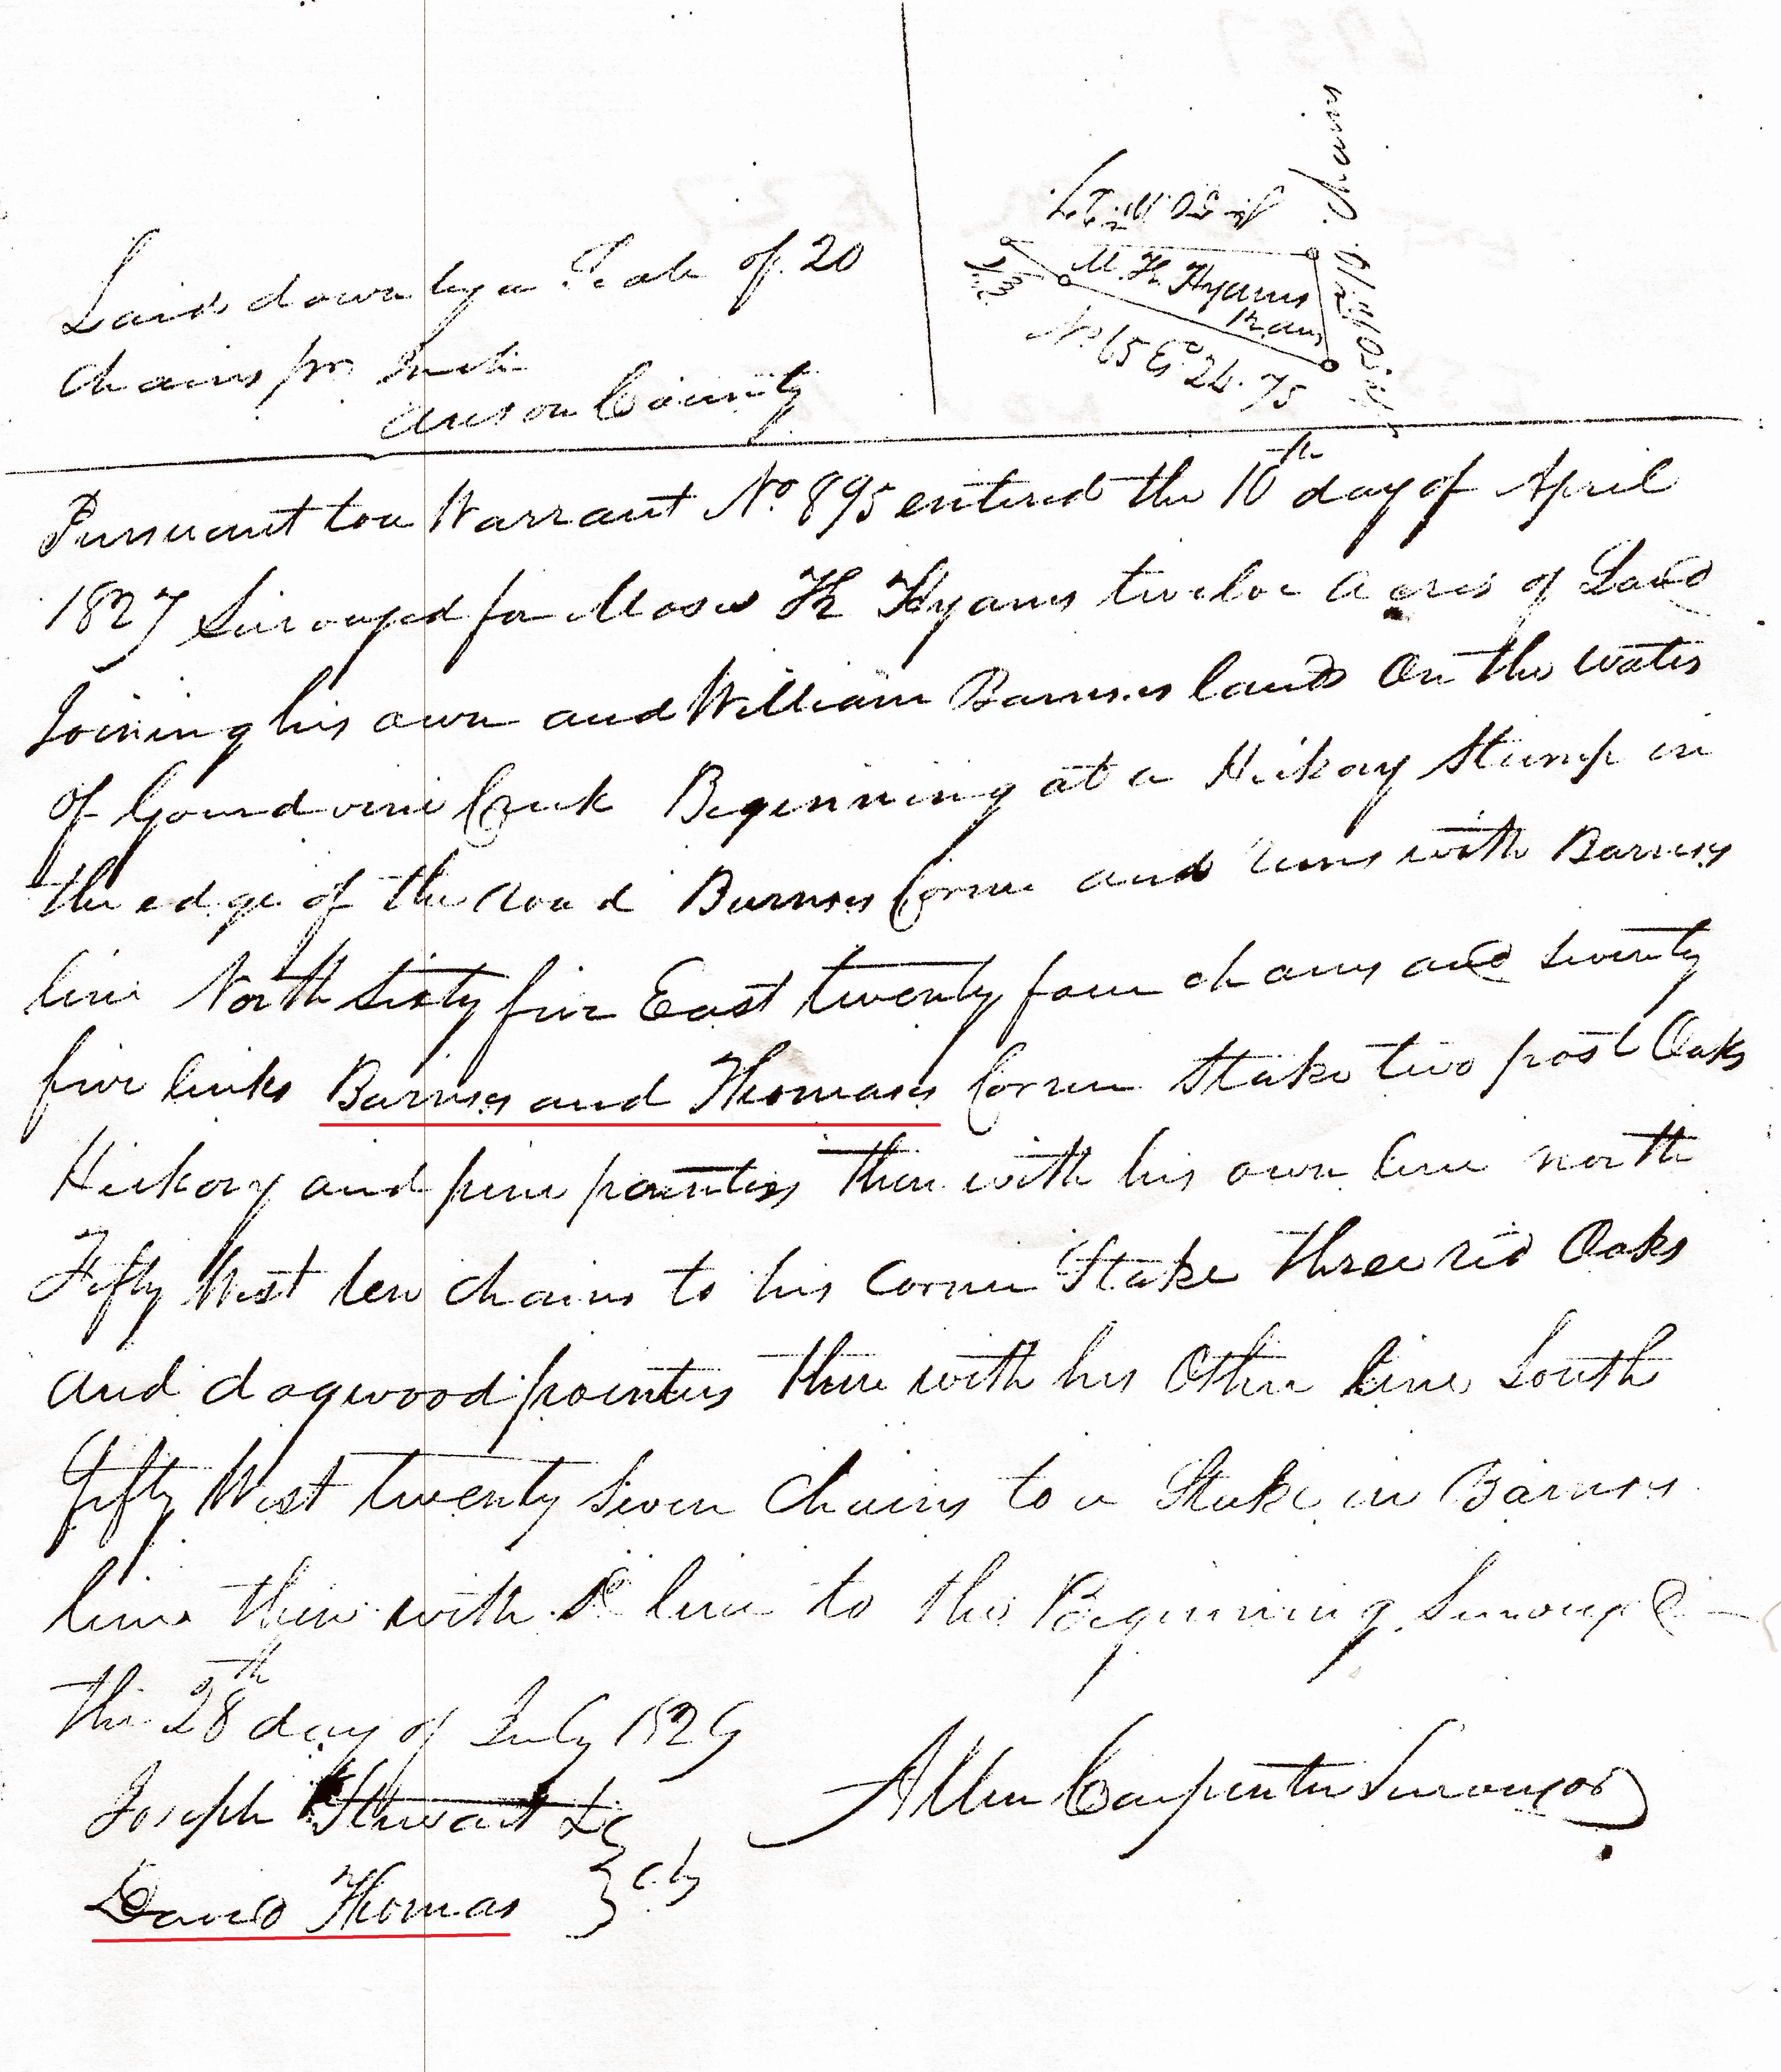 Laid down by a Scale of 20
chains pr Inch
Anson County
M. H. Hyams
12 acres
No. 65 Et 24.75
chains
Pursuant to a Warrant No. 895 entered the 10th day of April
1827 Surveyed for Moses H Hyams twelve acres of Land
Joining his own and William Barnses lands On the waters
of Gourdvine Creek Beginning at a Hickory Stump in
the edge of the road Barnses Corner and runs with Barnses
line North Sixty five East twenty four chains and seventy
five links Barnses and Thomases Corner Stake two post Oaks
Hickory and pine pointers then with his own line north
Fifty West ten chains to his Corner Stake three red Oaks
and dogwood pointers then with his Other line South
Fifty West twenty Seven Chains to a Stake in Barnses
line then with line to the Beginning Surveyed
the 28th day of July 1829
Joseph Stewart
David Thomas
Allen Carpenter Surveyor